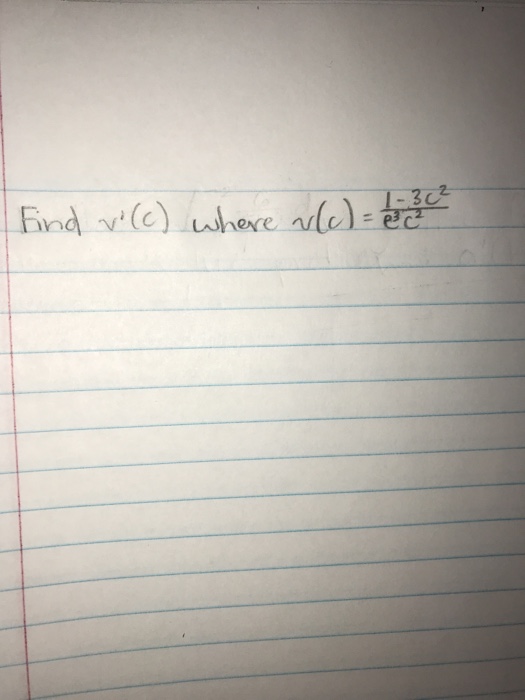 Find v'(c) where v(c) = \frac{1-3c^2}{e^3c^2}